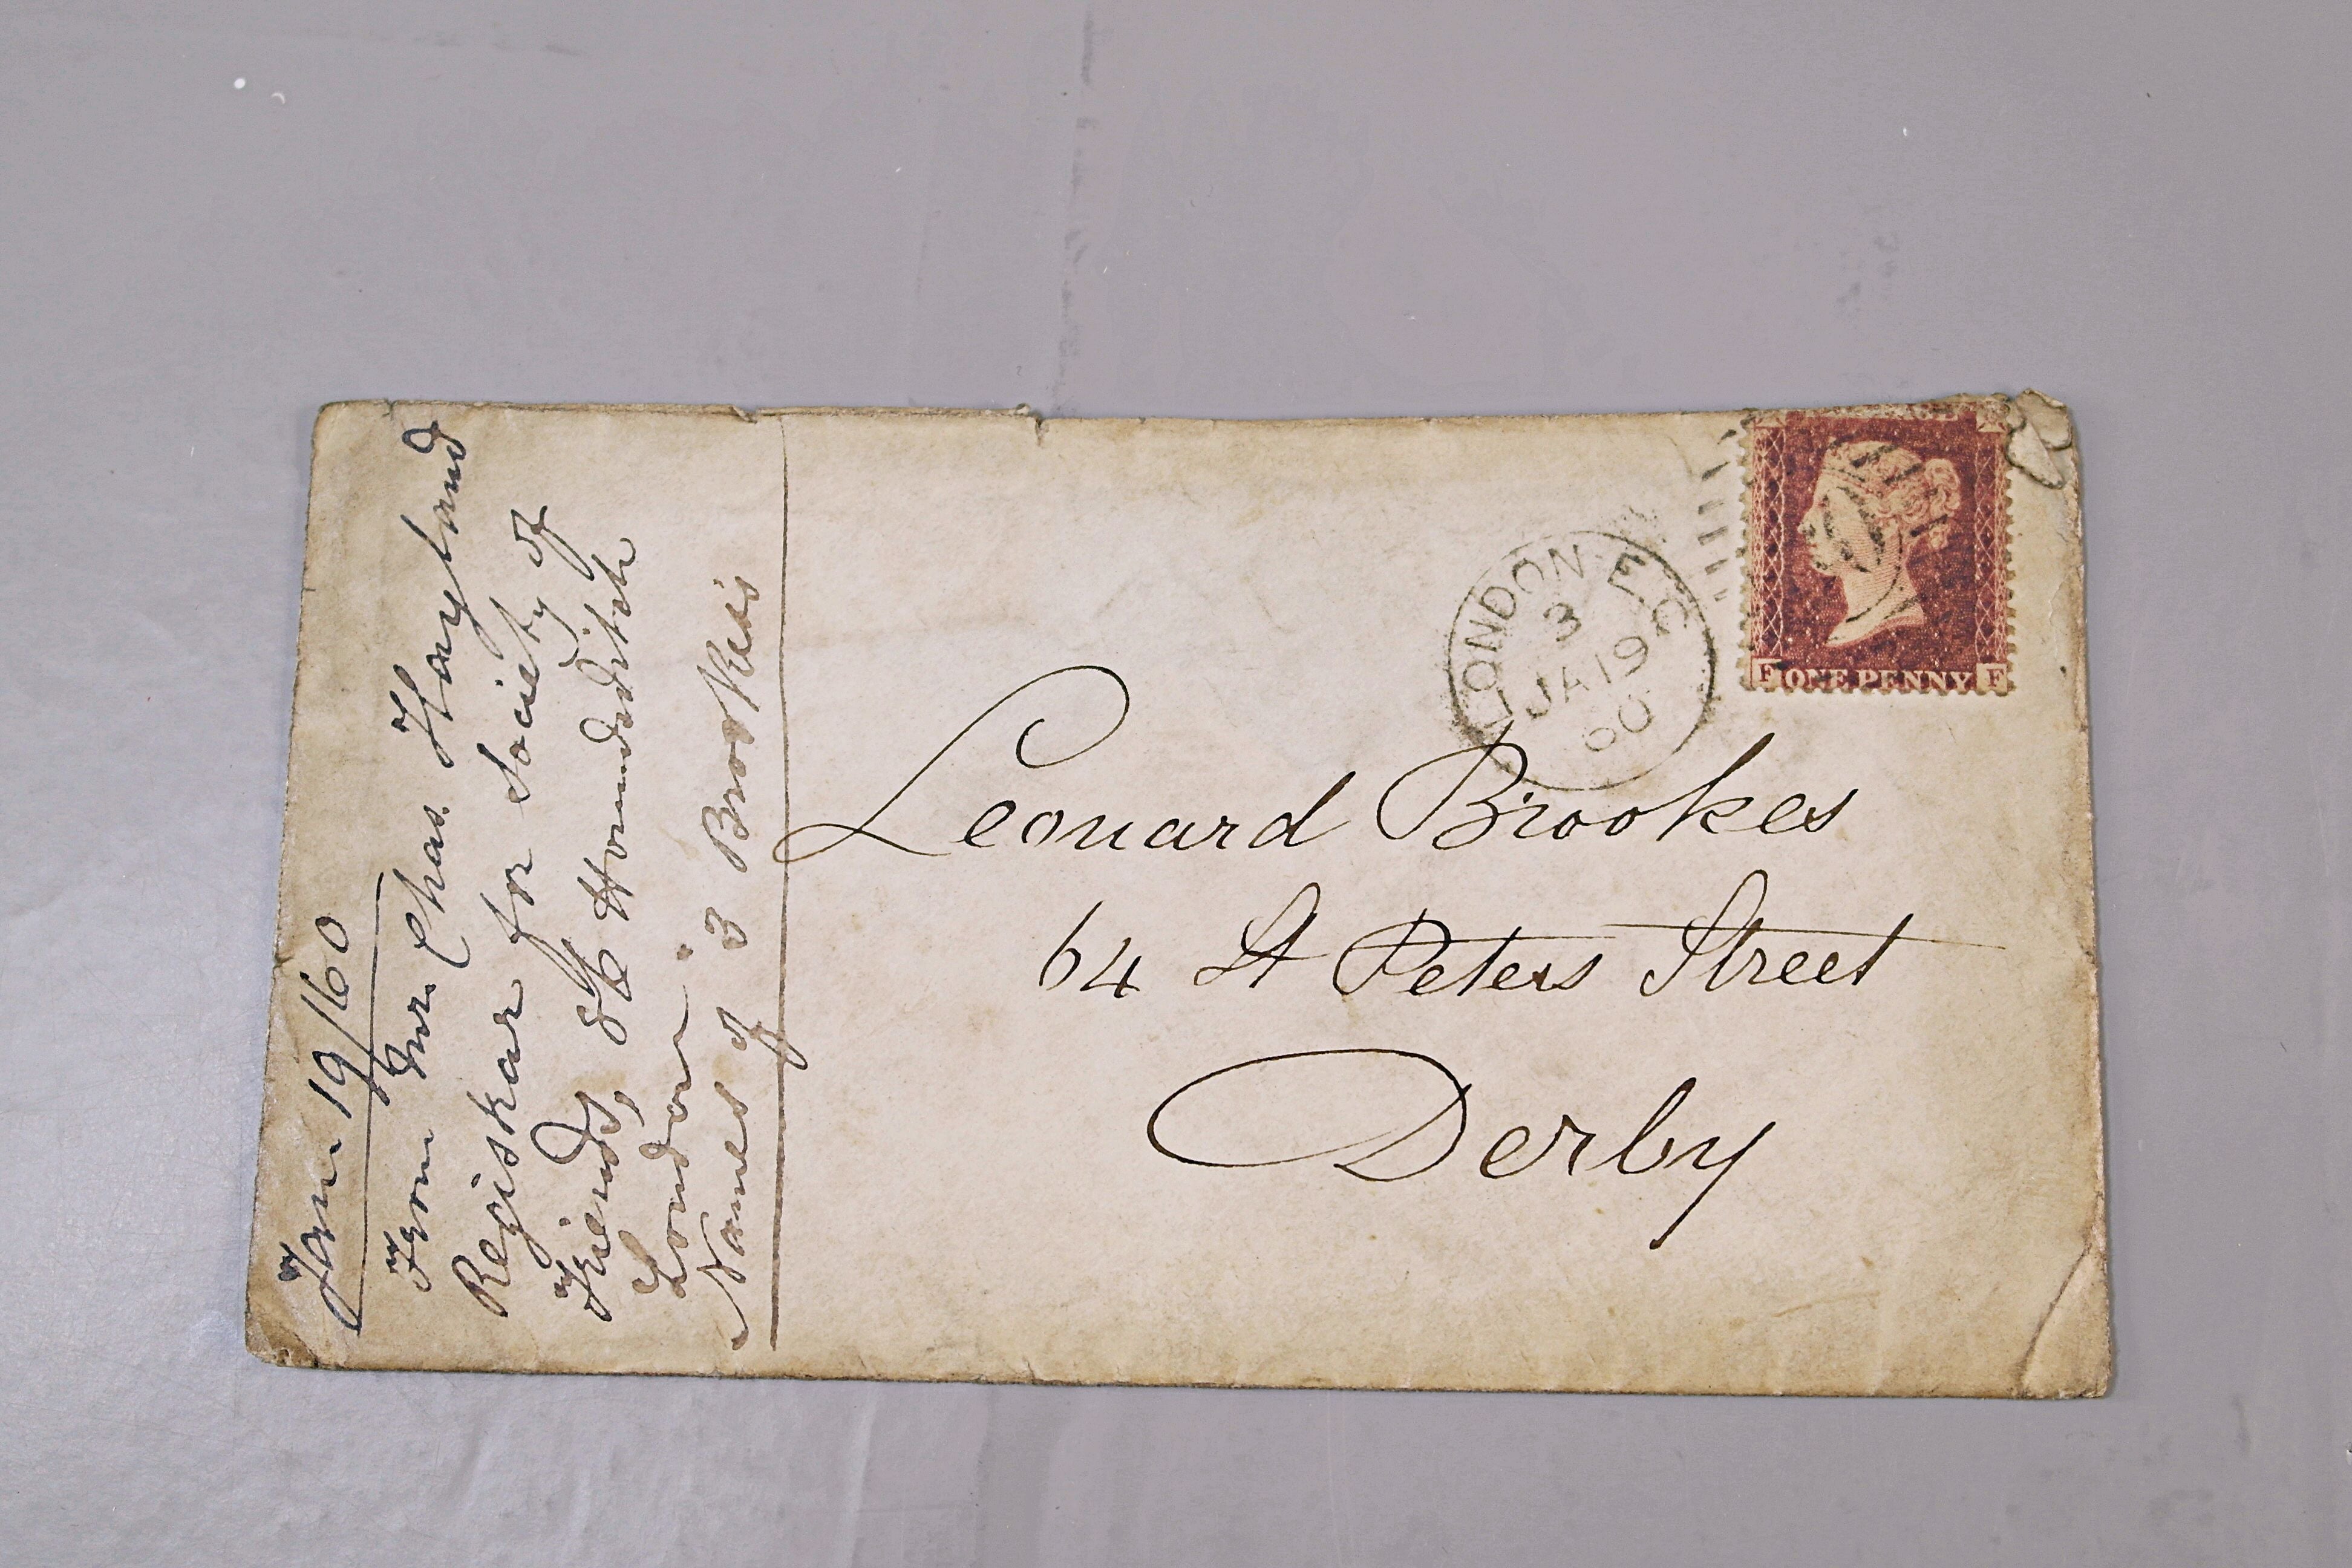 Jan 19/60
From Mr. Chas. Hoyland
Registrar for Society of
Friends, 86 Houndsditch
London.
Names of 3 Brookes's
LONDON E C
3
JA 19
60
F ONE PENNY F
Leonard Brookes
64 St Peters Street
Derby